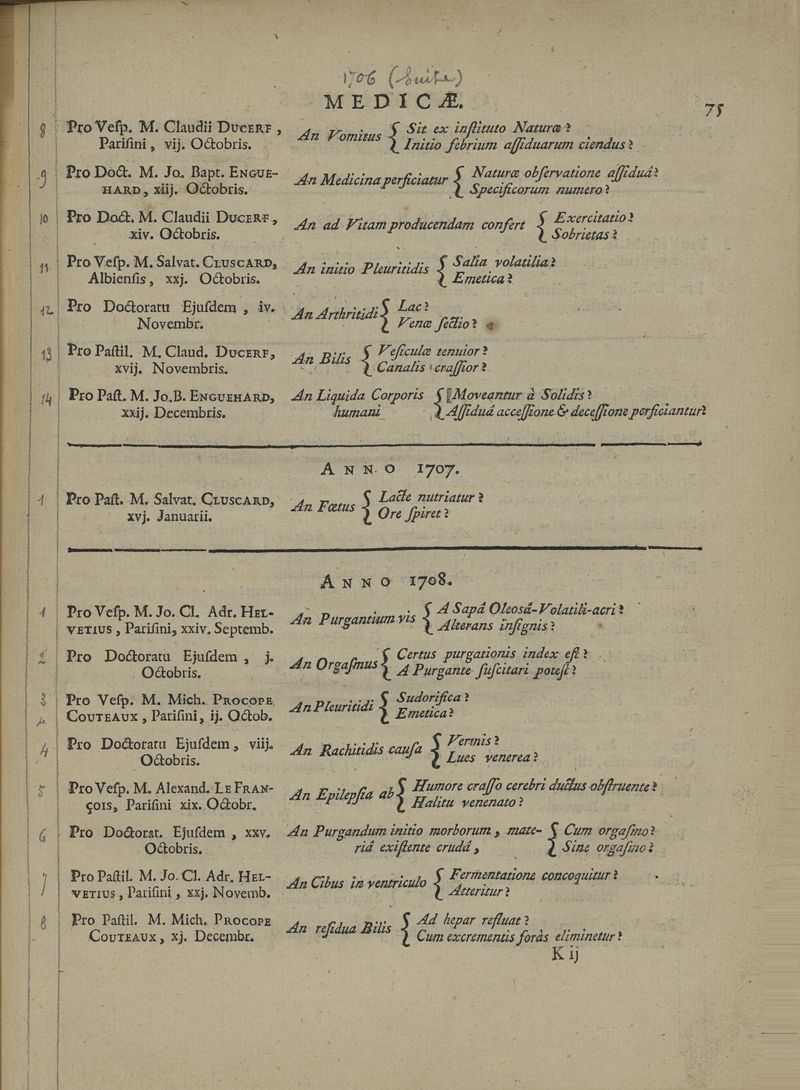 1706 (Suite)
MEDICÆ. 75
8 Pro Vesp. M. Claudii Ducerf, An Vomitus { Sit ex instituto Naturæ?
Parisini, vij. Octobris. { Initio febrium assiduarum ciendus?
9 Pro Doct. M. Jo. Bapt. Engue- An Medicina perficiatur { Naturæ observatione assiduâ?
hard, xiij. Octobris. { Specificorum numero?
10 Pro Doct. M. Claudii Ducerf, An ad Vitam producendam confert { Exercitatio?
xiv. Octobris. { Sobrietas?
11 Pro Vesp. M. Salvat. Cluscard, An initio Pleuritidis { Salia volatilia?
Albiensis, xxj. Octobris. { Emetica?
12 Pro Doctoratu Ejusdem, iv. An Arthritidi { Lac?
Novembr. { Venæ sectio?
13 Pro Pastil. M. Claud. Ducerf, An Bilis { Vesiculæ tenuior?
xvij. Novembris. { Canalis crassior?
14 Pro Past. M. Jo. B. Enguehard, An Liquida Corporis { Moveantur à Solidis?
xxij. Decembris. humani { Assiduâ accessione & decessione perficiantur?
Anno 1707.
1 Pro Past. M. Salvat. Cluscard, An Fœtus { Lacte nutriatur?
xvj. Januarii. { Ore spiret?
Anno 1708.
1 Pro Vesp. M. Jo. Cl. Adr. Hel- An Purgantium vis { A Sapâ Oleosâ-Volatili-acri?
vetius, Parisini, xxiv. Septemb. { Alterans insignis?
2 Pro Doctoratu Ejusdem, j. An Orgasmus { Certus purgationis index est?
Octobris. { A Purgante suscitari potest?
3 Pro Vesp. M. Mich. Procope An Pleuritidi { Sudorifica?
Couteaux, Parisini, ij. Octob. { Emetica?
4 Pro Doctoratu Ejusdem, viij. An Rachitidis causa { Vermis?
Octobris. { Lues venerea?
5 Pro Vesp. M. Alexand. Le Fran- An Epilepsia ab { Humore crasso cerebri ductus obstruente?
çois, Parisini xix. Octobr. { Halitu venenato?
6 Pro Doctorat. Ejusdem, xxv. An Purgandum initio morborum, mate- { Cum orgasmo?
Octobris. riâ existente crudâ, { Sine orgasmo?
7 Pro Pastil. M. Jo. Cl. Adr. Hel- An Cibus in ventriculo { Fermentatione concoquitur?
vetius, Parisini, xxj. Novemb. { Atteritur?
8 Pro Pastil. M. Mich. Procope An residua Bilis { Ad hepar refluat?
Couteaux, xj. Decembr. { Cum excrementis foràs eliminetur?
K ij